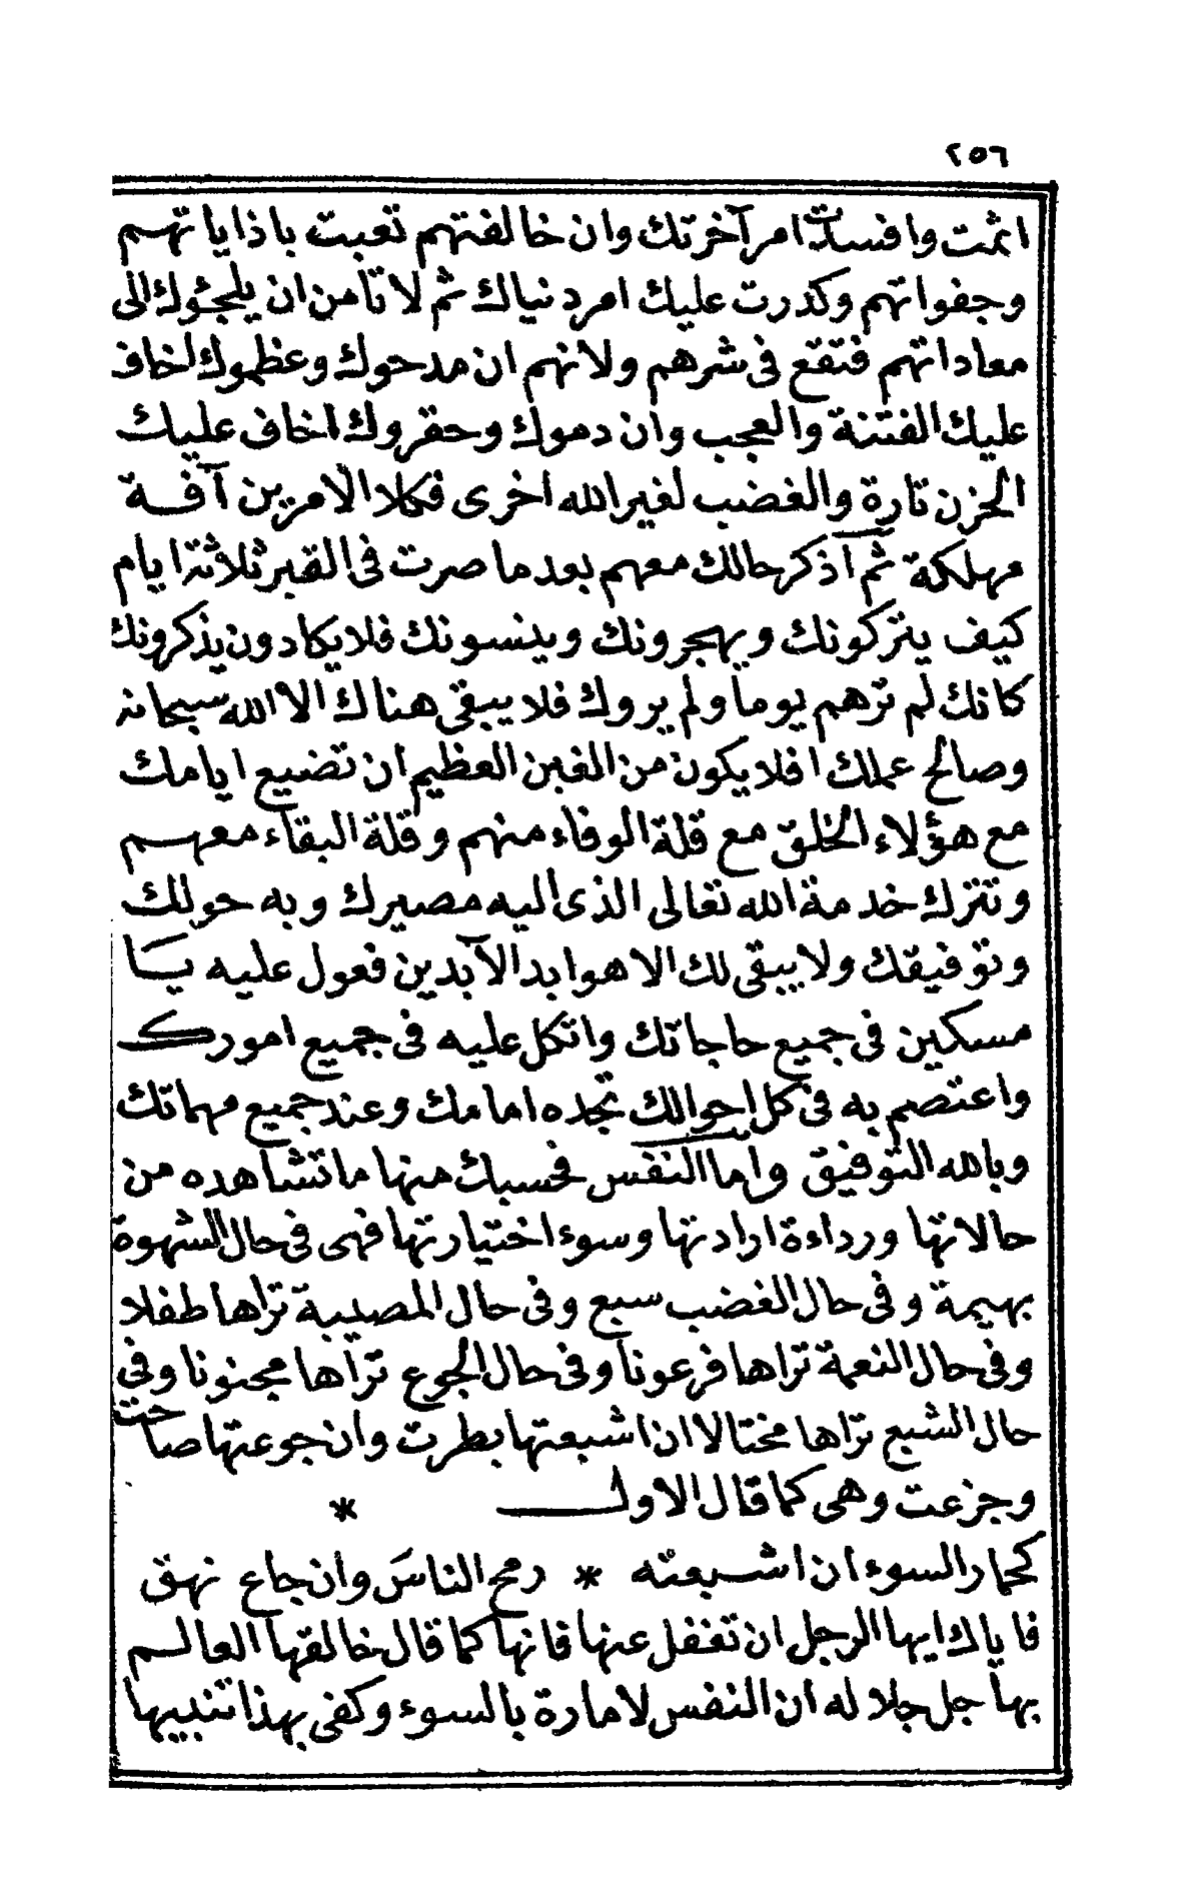 ٢٥٦
اثمت وافسدت امر آخرتك وان خالفتهم تعبت باذاياتهم
وجفواتهم وكدرت عليك امر دنياك ثم لا تأمن ان يلجئوك الى
معاداتهم فتقع فى شرهم ولانهم ان مدحوك وعظموك اخاف
عليك الفتنة والعجب وان دموك وحقروك اخاف عليك
الحزن تارة والغضب لغير الله اخرى فكلا الامرين آفة
مهلكة ثم اذكر حالك معهم بعد ما صرت فى القبر ثلاثة ايام
كيف يتركونك ويهجرونك وينسونك فلا يكادون يذكرونك
كانك لم ترهم يوما ولم يروك فلا يبقى هناك الا الله سبحانه
وصالح عملك افلا يكون من الغبن العظيم ان تضيع ايامك
مع هؤلاء الخلق مع قلة الوفاء منهم وقلة البقاء معهم
وتترك خدمة الله تعالى الذى اليه مصيرك وبه حولك
وتوفيقك ولا يبقى لك الا هو ابد الآبدين فعول عليه يا
مسكين فى جميع حاجاتك واتكل عليه فى جميع امورك
واعتصم به فى كل احوالك تجده امامك وعند جميع مهماتك
وبالله التوفيق واما النفس فحسبك منها ما تشاهده من
حالاتها ورداءة ارادتها وسوء اختيارتها فهى فى حال الشهوة
بهيمة وفى حال الغضب سبع وفى حال المصيبة تراها طفلا
وفى حال النعمة تراها فرعونا وفى حال الجوع تراها مجنونا وفى
حال الشبع تراها مختالا ان اشبعتها بطرت وان جوعتها صاحت
وجزعت وهى كما قال الاول *
كحمار السوء ان اشبعته * رمح الناس وان جاع نهق
فاياك ايها الرجل ان تغفل عنها فانها كما قال خالقها العالم
بها جل جلاله ان النفس لامارة بالسوء وكفى بهذا تنبيها